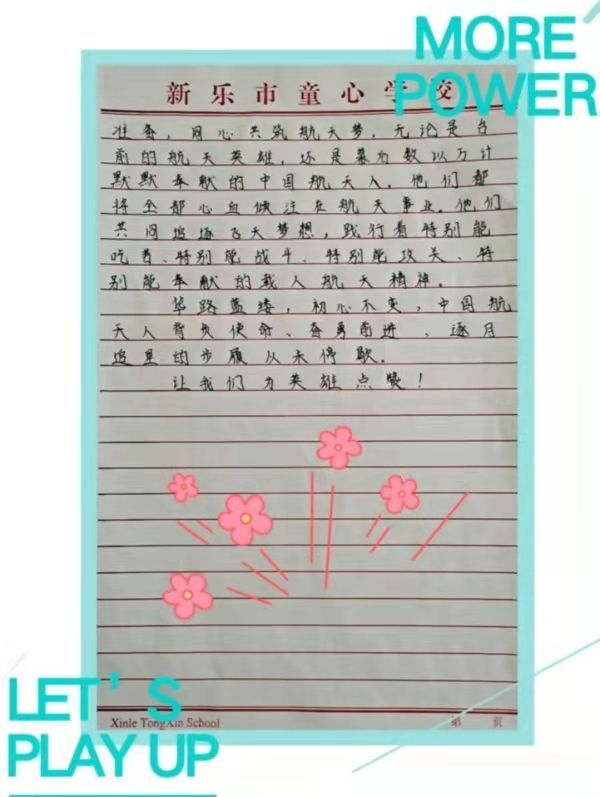 MORE
POWER
新乐市童心学校
准备，同心共筑航天梦，无论是台
前的航天英雄，还是幕后数以万计
默默奉献的中国航天人。他们都
将全部心血倾注在航天事业。他们
共同追逐飞天梦想，践行着特别能
吃苦、特别能战斗、特别能攻关、特
别能奉献的载人航天精神。
筚路蓝缕，初心不变，中国航
天人背负使命、奋勇前进、逐月
追星的步履从未停歇。
让我们为英雄点赞！
LET'S
PLAY UP
Xinle TongXin School
第 页